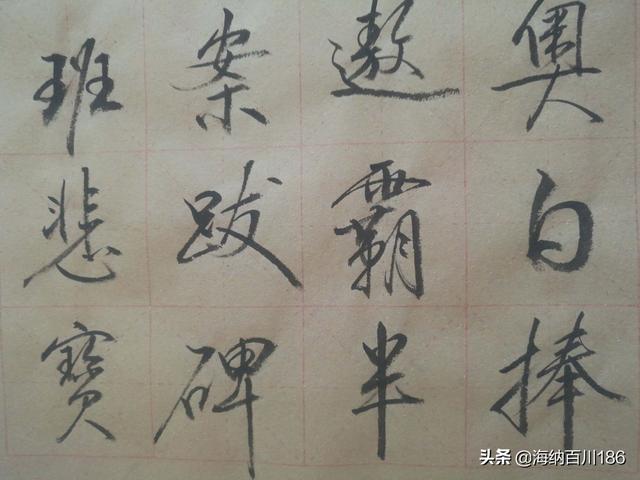 奥白捧
遨霸半
案跋碑
班悲寶
头条 @海纳百川186